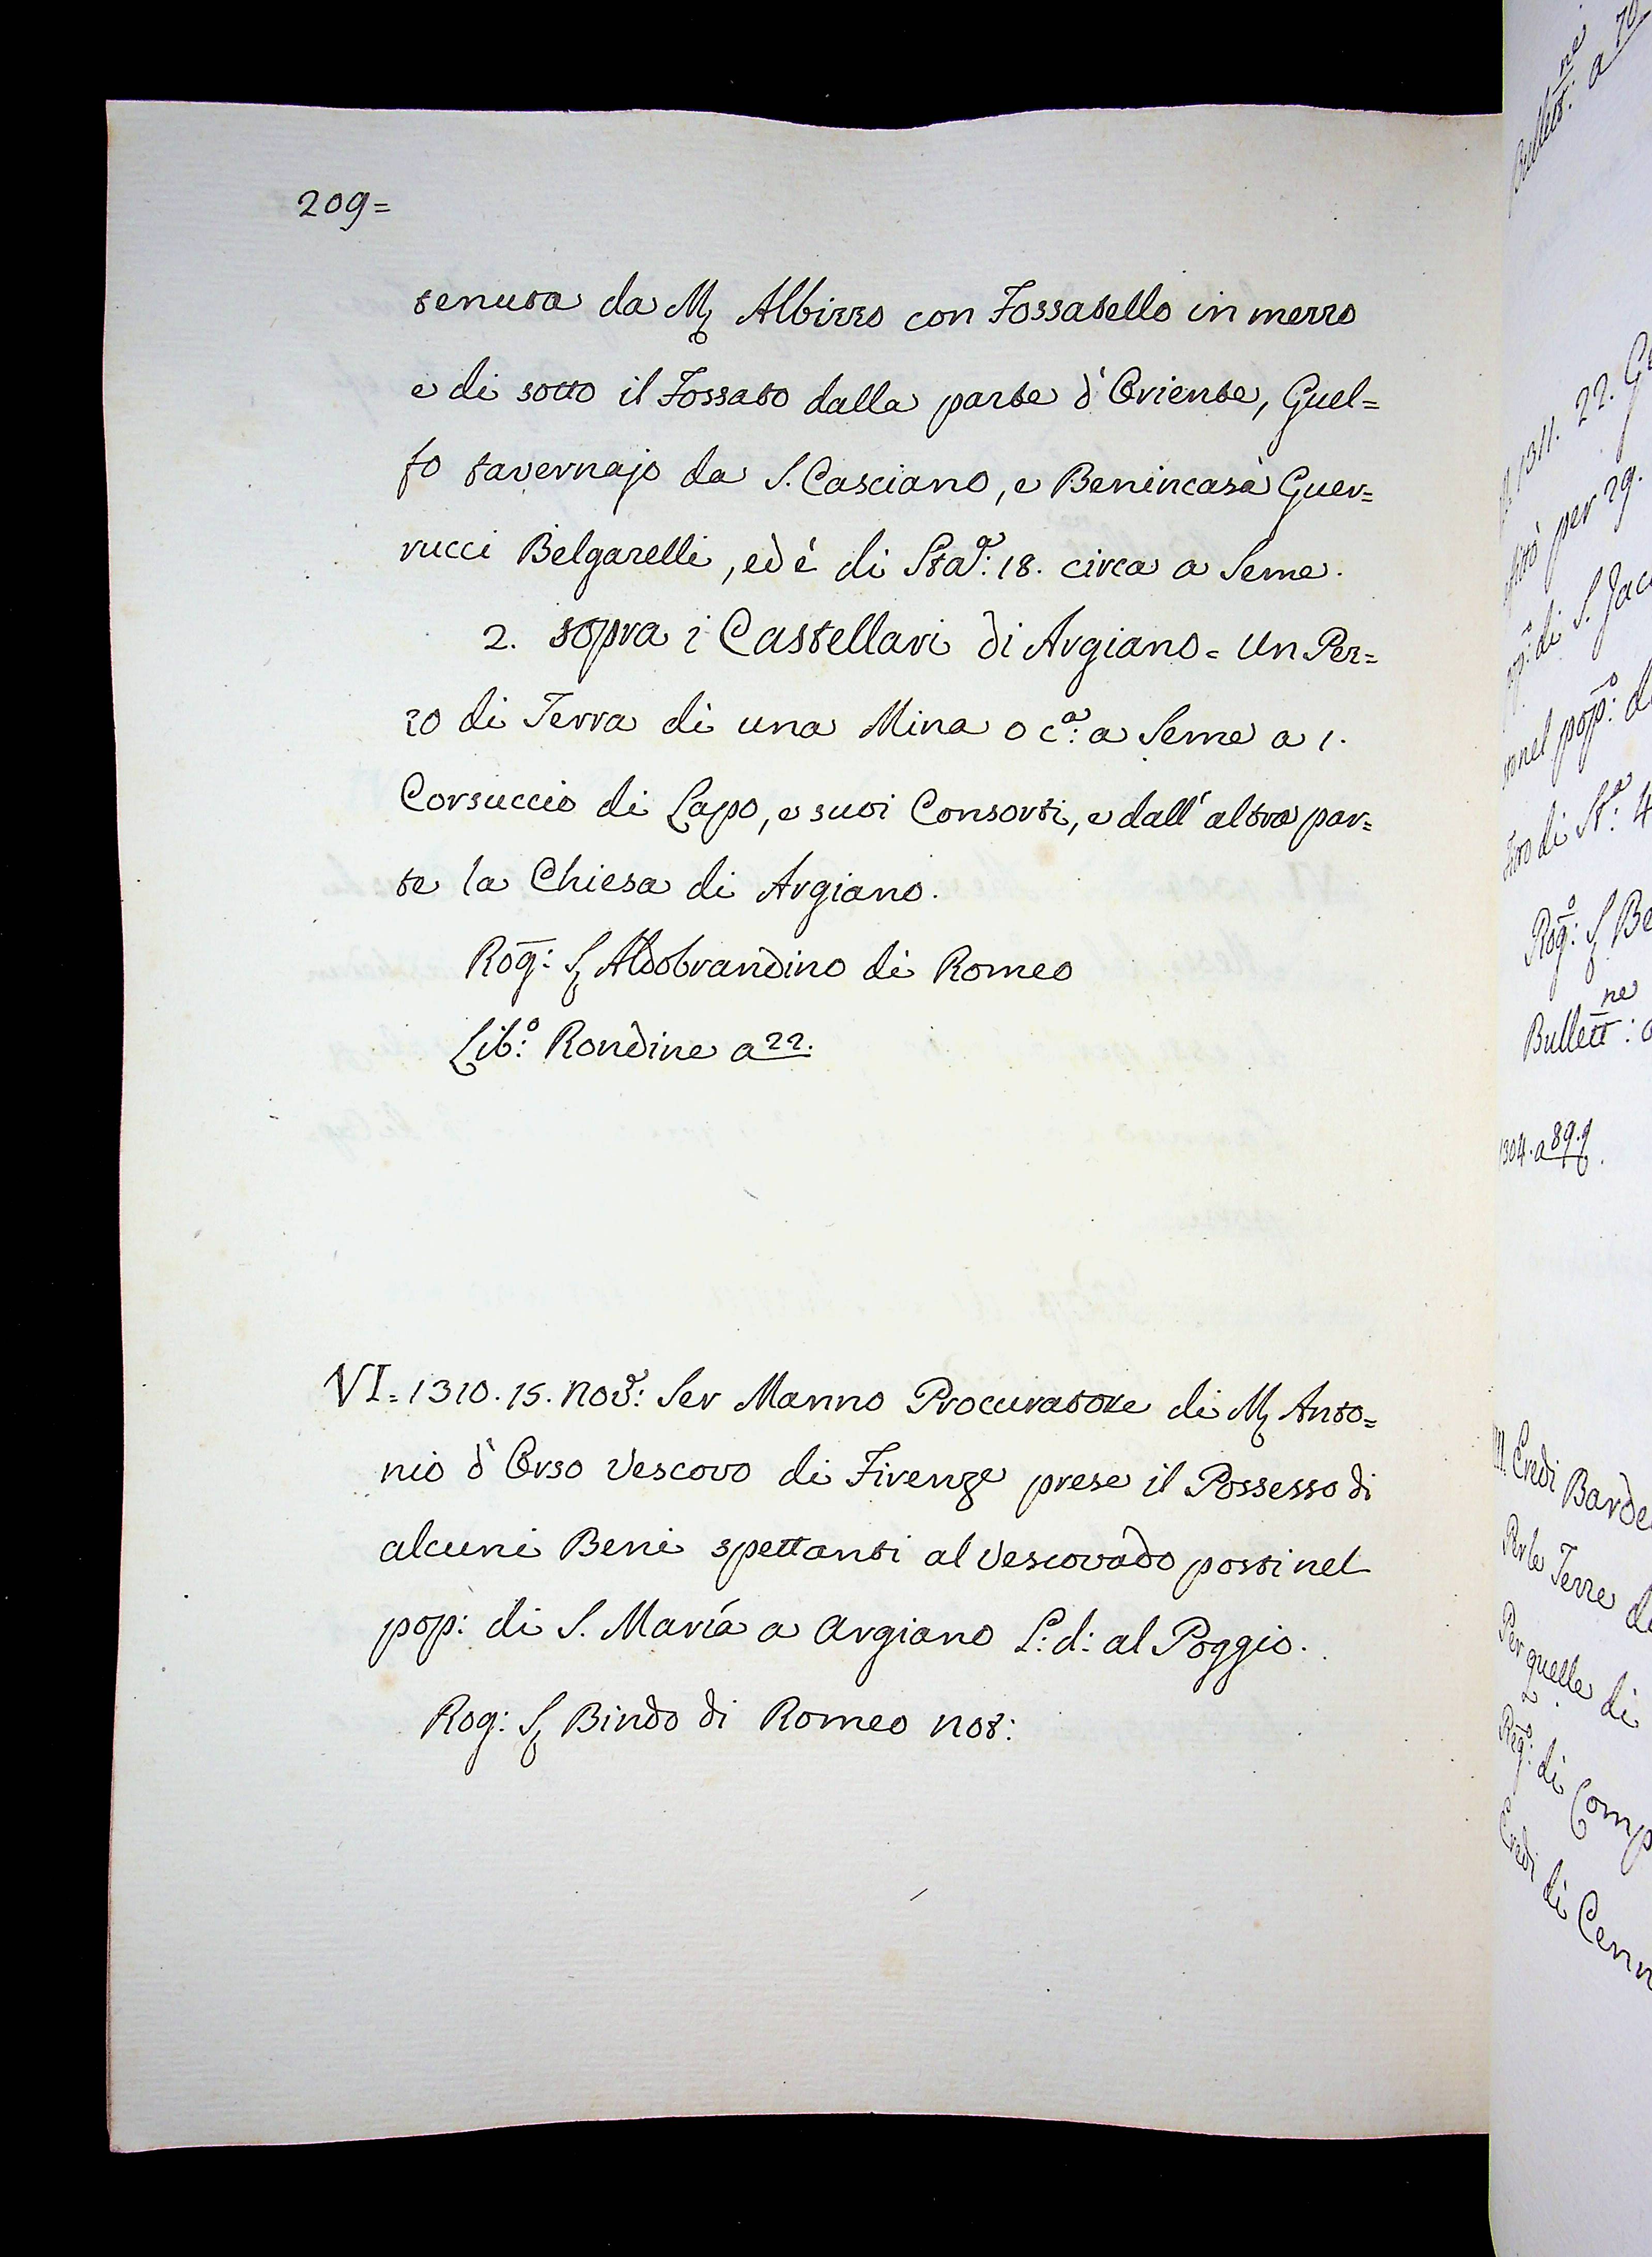 209=
tenuta da M. Albizzo con Fossatello in mezzo
e di sotto il Fossato dalla parte d'Oriente, Guel=
fo tavernajo da S. Casciano, e Benincasa Guer=
rucci Belgazelli, ed è di Staª: 18. circa a Seme.
2. sopra i Castellari di Argiano = Un Pez=
zo di Terra di una Mina o cª: a Seme a 1.
Corsuccio di Lapo, e suoi Consorti, e dall'altra par=
te la Chiesa di Argiano.
Rog: S. Aldobrandino di Romeo
Libº: Rondine a 22.
VI = 1310. 15. Nov: Ser Manno Procuratore di M. Anto=
nio d'Orso Vescovo di Firenze prese il Possesso di
alcuni Beni spettanti al Vescovado posti nel
pop: di S. Maria a Argiano L: d: al Poggio.
Rog: S. Bindo di Romeo not:
Bullettne: a 70
1311. 22.
per 29.
di S. Jac
nel popº: d
di Stª: 4
Rogº: S. Be
Bullettne:
1304. a 89.
Credi Barde
Per le Terre d
Per quelle di
Regº: di Comp
Credi di Cenn